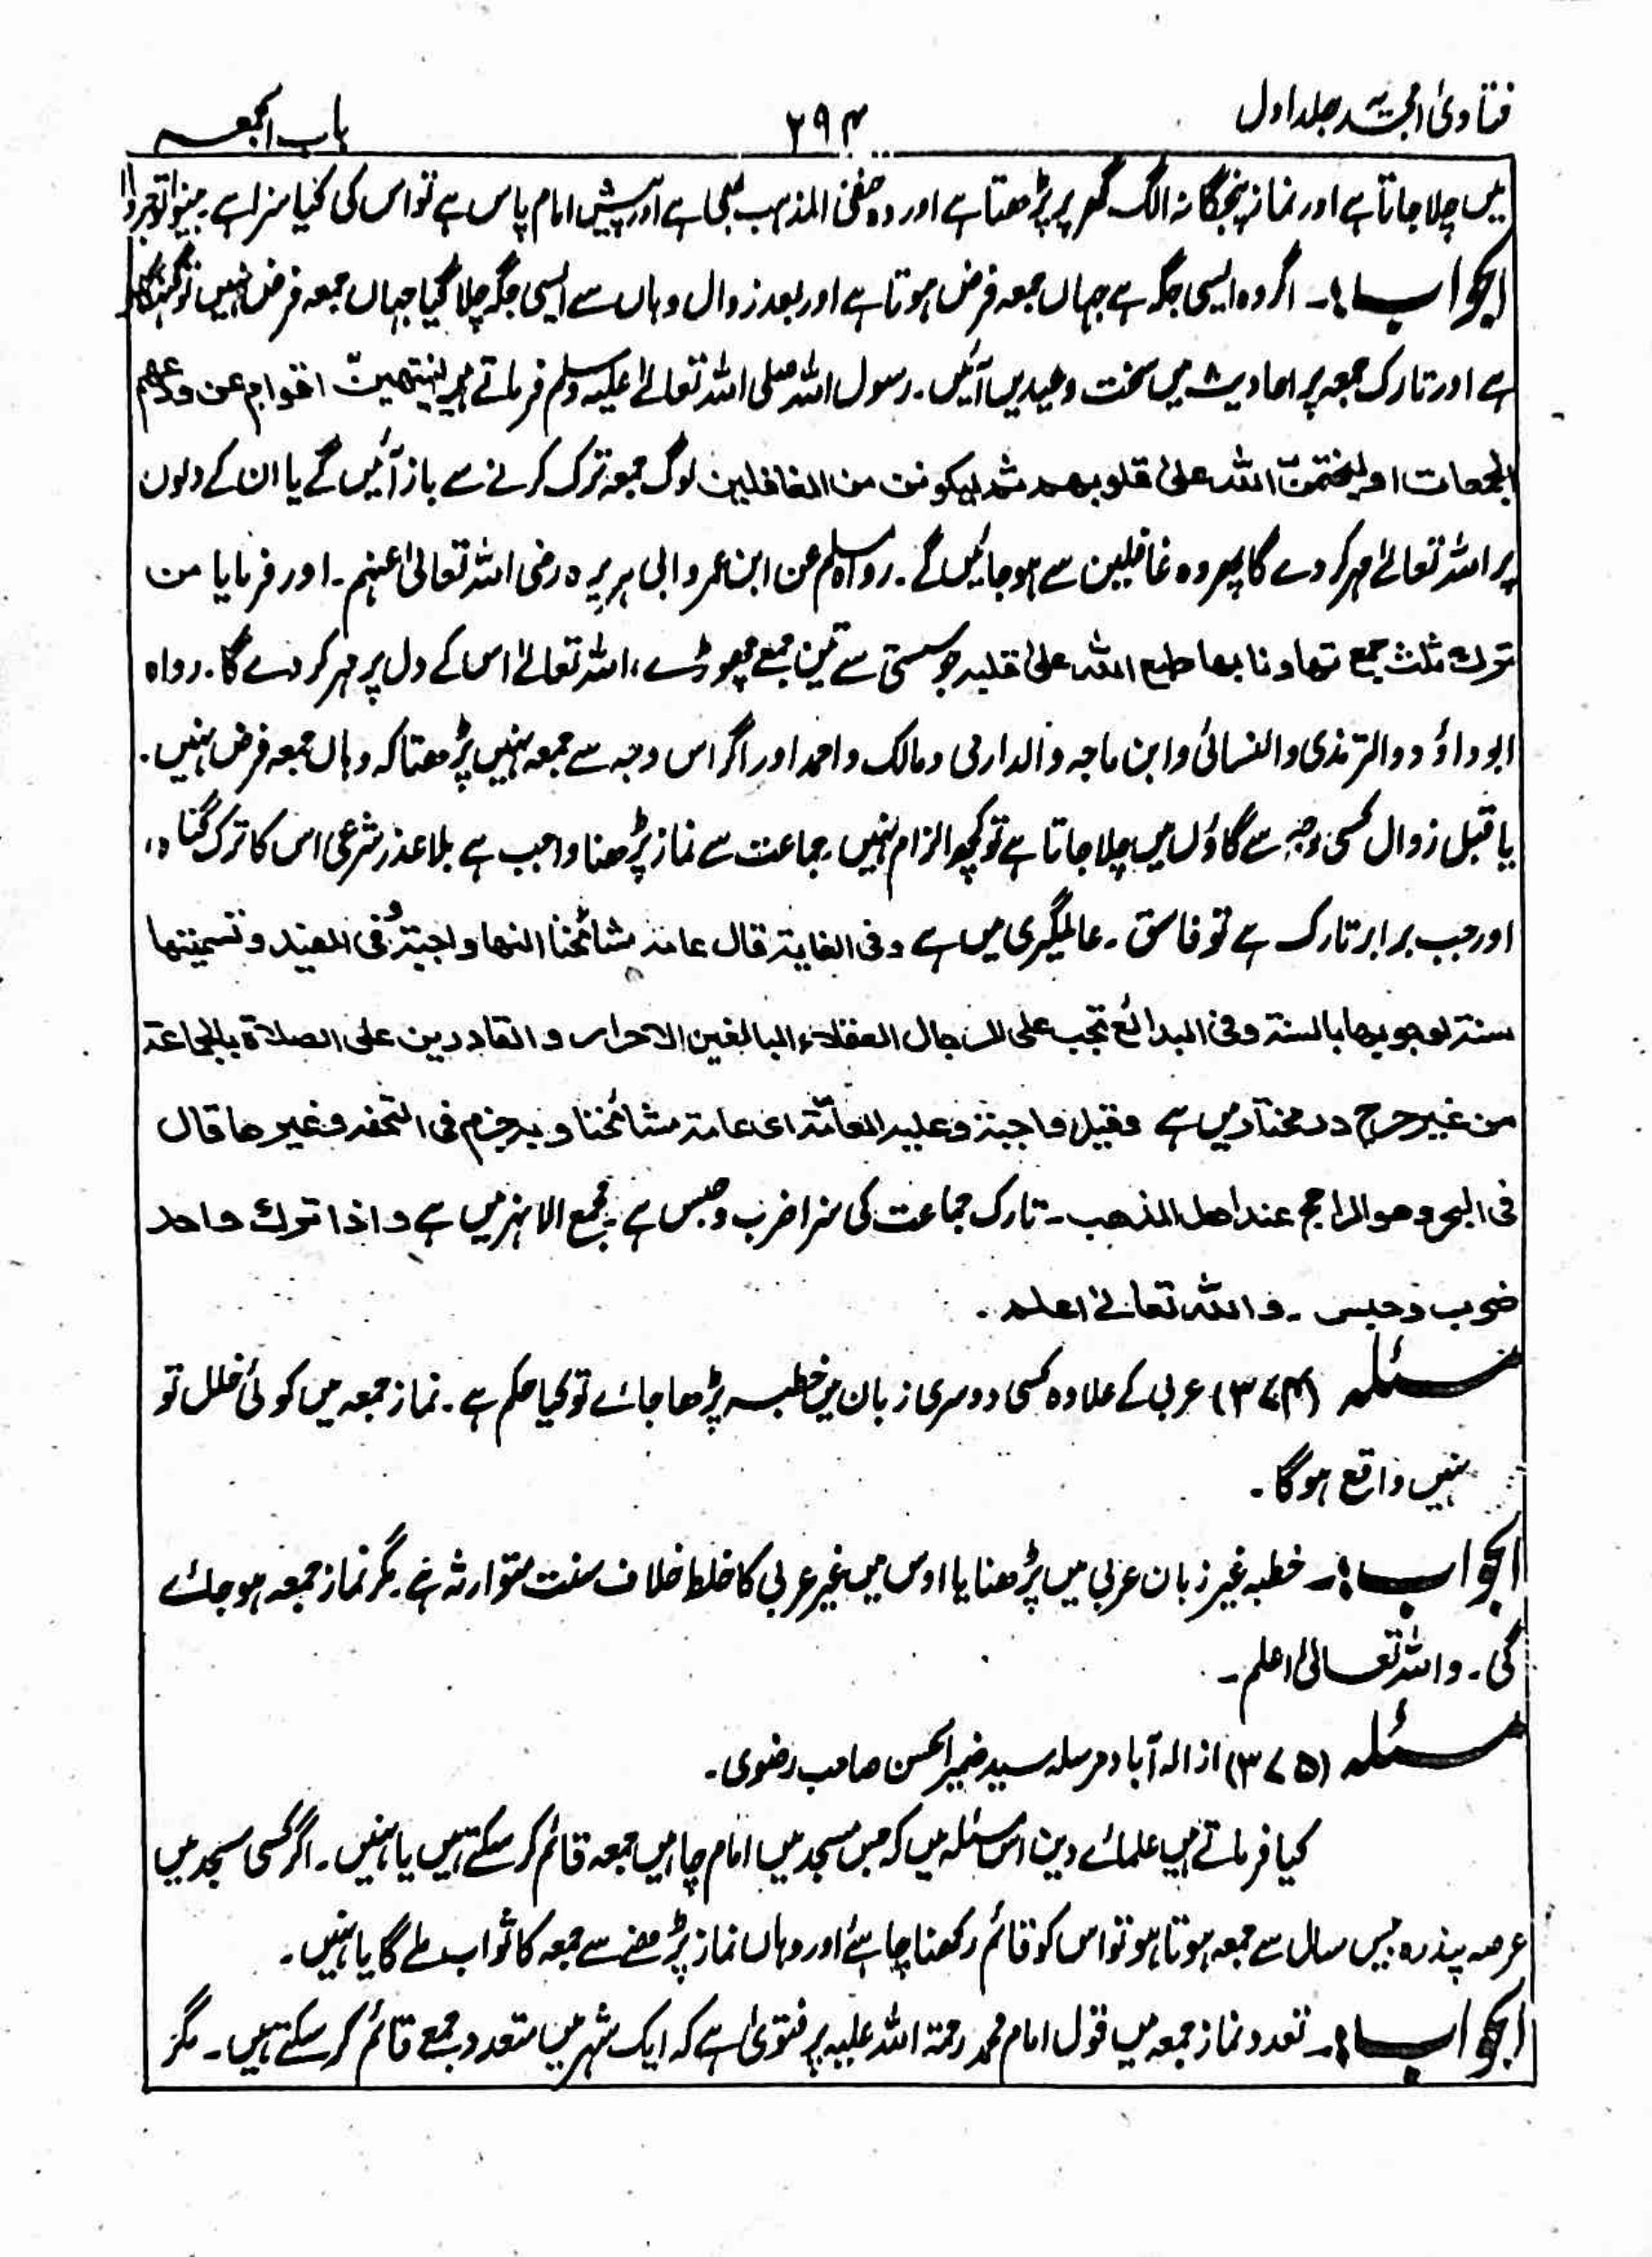 فتاویٰ امجدیہ جلد اول
۲۹۴
باب الجمعہ
میں چلا جاتا ہے اور نماز پنجگانہ الگ گھر پر پڑھتا ہے اور وہ حنفی المذہب بھی ہے اور پیش امام پاس ہے تو اس کی کیا سزا ہے۔ بینوا توجروا
الجواب :۔ اگر وہ ایسی جگہ ہے جہاں جمعہ فرض ہوتا ہے اور بعد زوال وہاں سے ایسی جگہ چلا گیا جہاں جمعہ فرض نہیں تو گنہگار
ہے اور تارک جمعہ پر احادیث میں سخت وعیدیں آئیں۔ رسول اللہ صلی اللہ تعالےٰ علیہ وسلم فرماتے ہیں لینتھین اقوام عن ودعھم
الجمعات او لیختمن اللہ علیٰ قلوبھم ثم لیکونن من الغافلین لوگ جمعہ ترک کرنے سے باز آئیں گے یا ان کے دلوں
پر اللہ تعالےٰ مہر کر دے گا پھر وہ غافلین سے ہو جائیں گے۔ رواہ مسلم عن ابن عمر وابی ہریرہ رضی اللہ تعالیٰ عنہم۔ اور فرمایا من
ترک ثلث جمع تھاونا بھا طبع اللہ علیٰ قلبہ جو سستی سے تین جمعے چھوڑے، اللہ تعالےٰ اس کے دل پر مہر کر دے گا۔ رواہ
ابو داؤد والترمذی والنسائی وابن ماجہ والدارمی ومالک واحمد اور اگر اس وجہ سے جمعہ نہیں پڑھتا کہ وہاں جمعہ فرض نہیں۔
یا قبل زوال کسی وجہ سے گاؤں میں چلا جاتا ہے تو کچھ الزام نہیں۔ جماعت سے نماز پڑھنا واجب ہے بلا عذر شرعی اس کا ترک گناہ،
اور جب برابر تارک ہے تو فاسق۔ عالمگیری میں ہے وفی الغایۃ قال عامۃ مشائخنا انھا واجبۃ وفی المفید وتسمیتھا
سنۃ لوجوبھا بالسنۃ وفی البدائع تجب علی الرجال العقلاء البالغین الاحرار والقادرین علی الصلاۃ بالجماعۃ
من غیر حرج درمختار میں ہے وقیل واجبۃ وعلیہ العامۃ ای عامۃ مشائخنا وبہ جزم فی التحفہ وغیرھا قال
فی البحر وھو الراجح عند اھل المذھب۔ تارک جماعت کی سزا ضرب وحبس ہے۔ مجمع الانہر میں ہے واذا ترک واحد
ضرب وحبس۔ واللہ تعالےٰ اعلم۔
مسئلہ (۳۷۴) عربی کے علاوہ کسی دوسری زبان میں خطبہ پڑھا جائے تو کیا حکم ہے۔ نماز جمعہ میں کوئی خلل تو
نہیں واقع ہوگا۔
الجواب :۔ خطبہ غیر زبان عربی میں پڑھنا یا اوس میں غیر عربی کا خلط خلاف سنت متوارثہ ہے۔ مگر نماز جمعہ ہو جائے
گی۔ واللہ تعالیٰ اعلم۔
مسئلہ (۳۷۵) از الہ آباد مرسلہ سید ضمیر الحسن صاحب رضوی۔
کیا فرماتے ہیں علمائے دین اس مسئلہ میں کہ جس مسجد میں امام چاہیں جمعہ قائم کر سکتے ہیں یا نہیں۔ اگر کسی مسجد میں
عرصہ پندرہ بیس سال سے جمعہ ہوتا ہو تو اس کو قائم رکھنا چاہئے اور وہاں نماز پڑھنے سے جمعہ کا ثواب ملے گا یا نہیں۔
الجواب :۔ تعدد نماز جمعہ میں قول امام محمد رحمۃ اللہ علیہ پر فتویٰ ہے کہ ایک شہر میں متعدد جمعے قائم کر سکتے ہیں۔ مگر